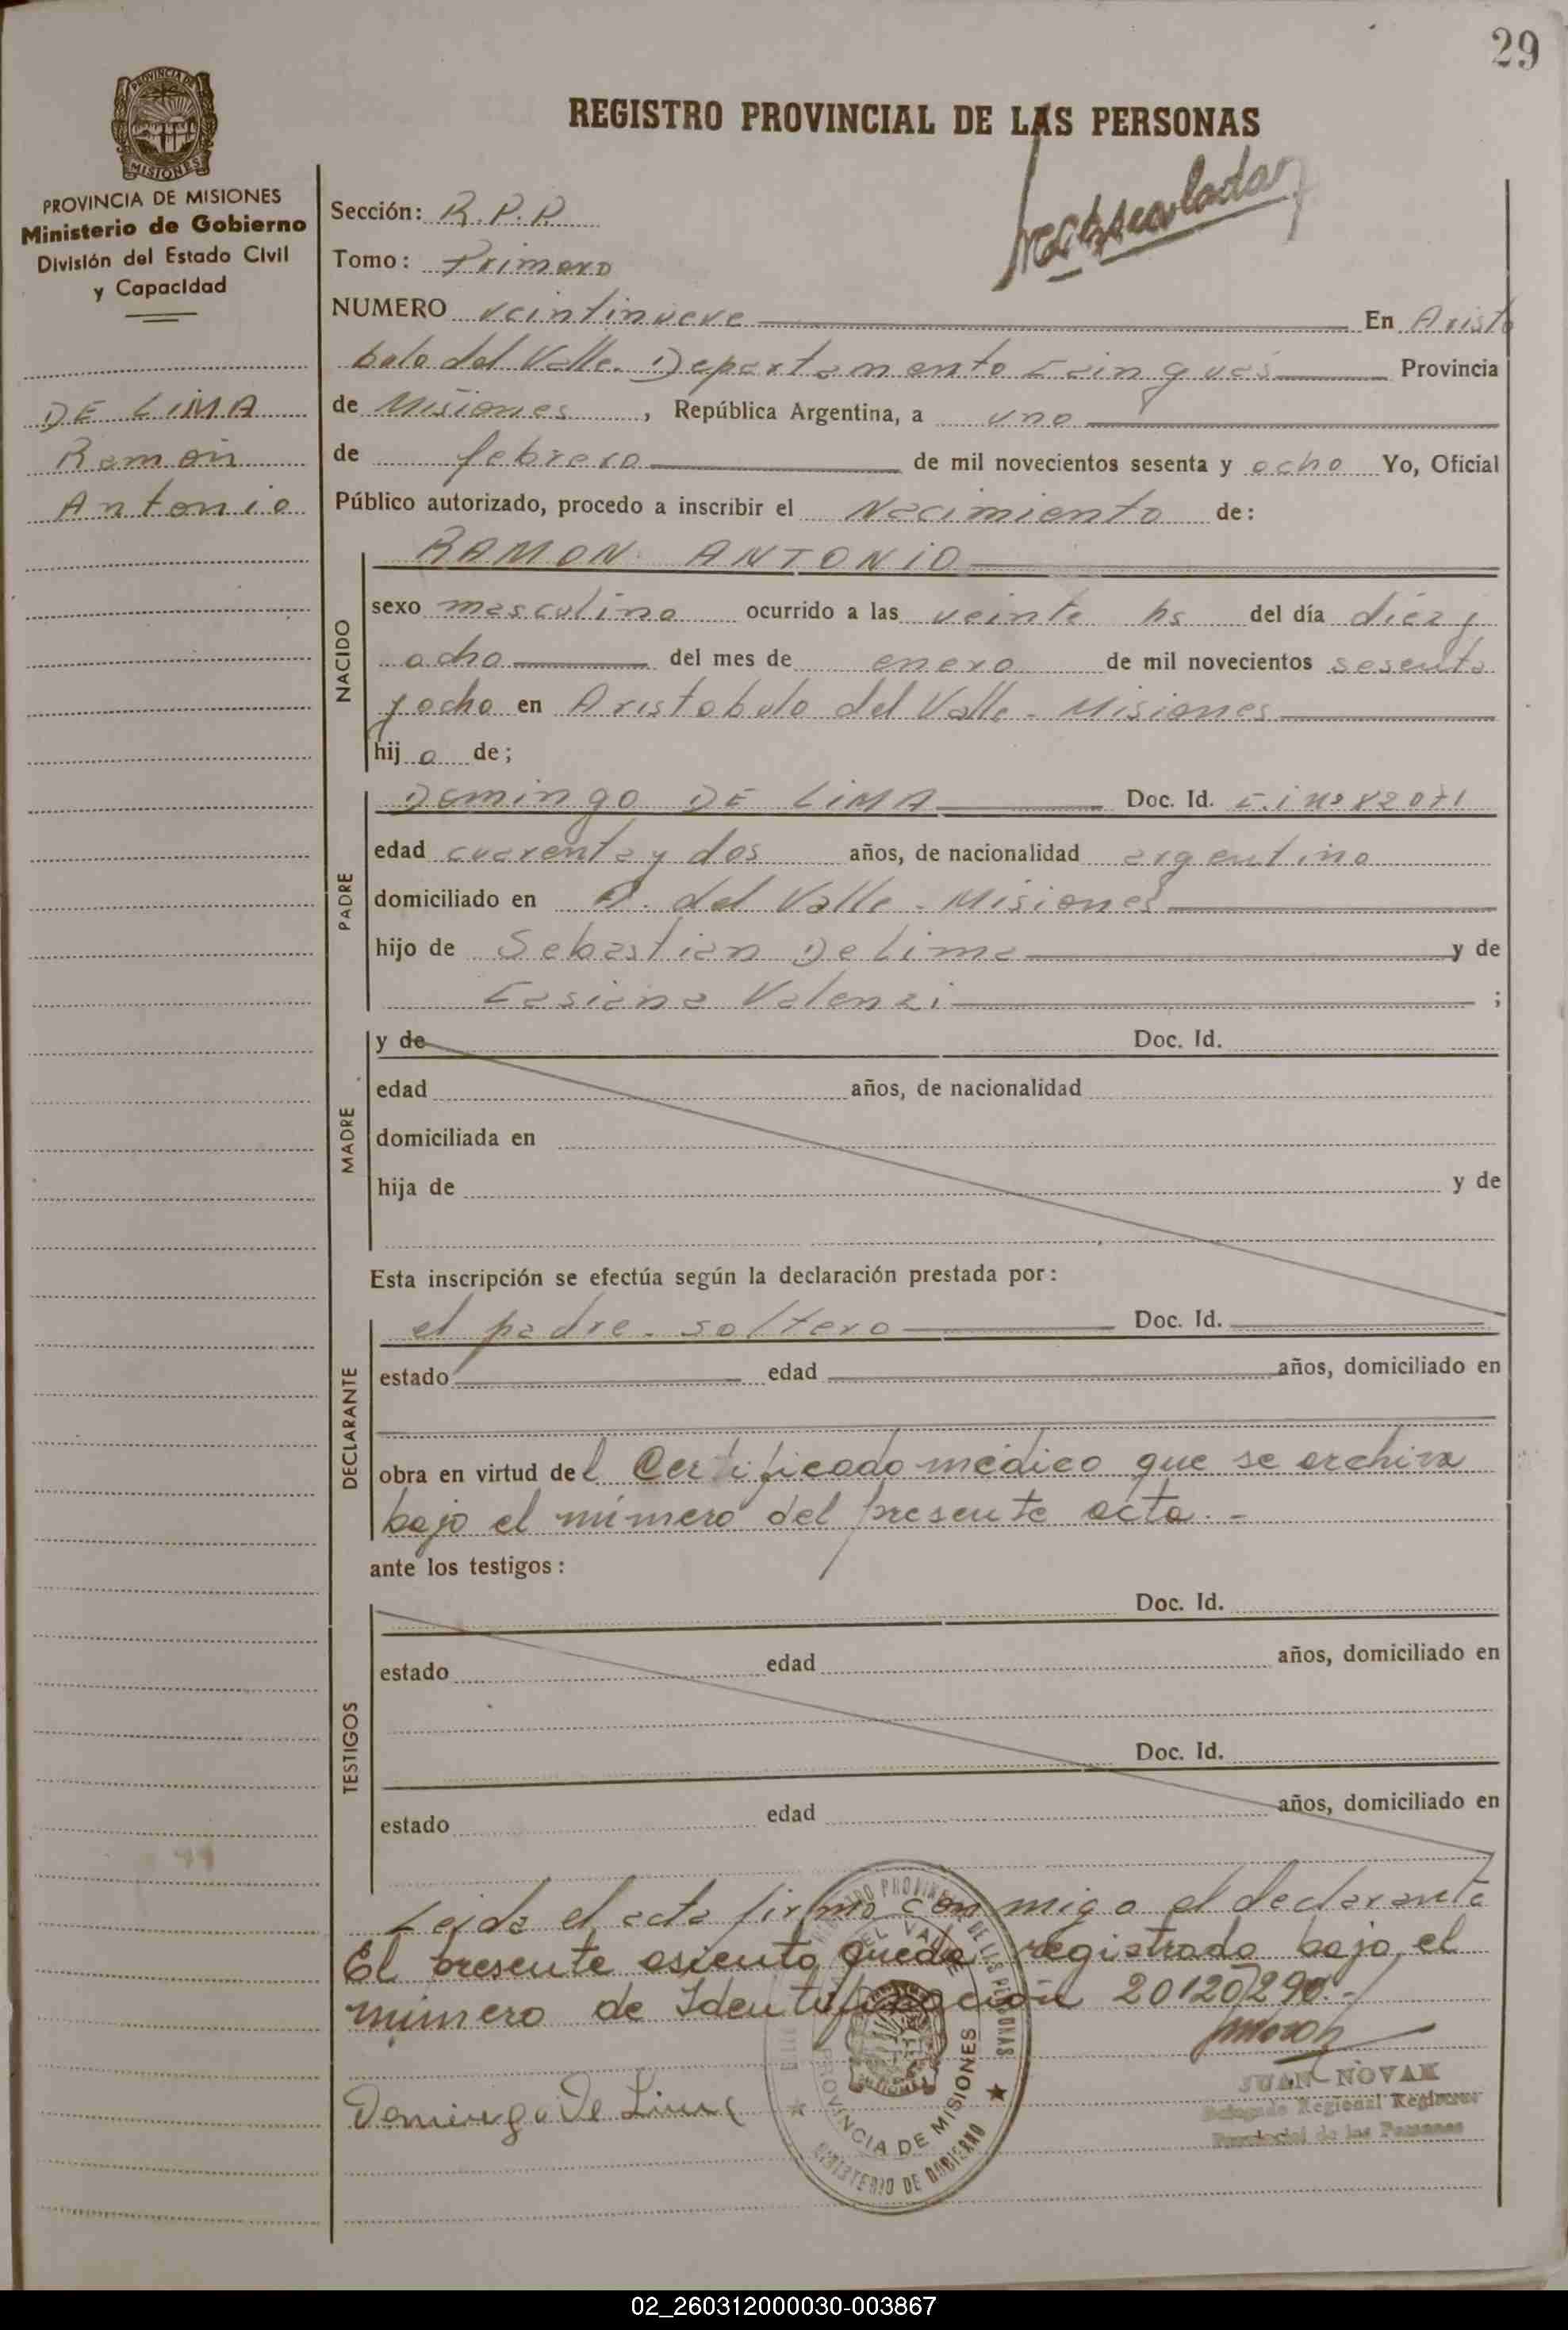 29
REGISTRO PROVINCIAL DE LAS PERSONAS
PROVINCIA DE
MISIONES
PROVINCIA DE MISIONES
Ministerio de Gobierno
División del Estado Civil
y Capacidad
DE LIMA
Ramón
Antonio
Sección: R.P.P.
Tomo: Primero
NUMERO veintinueve En Aristo
bulo del Valle. Departamento Cainguás Provincia
de Misiones, República Argentina, a uno
de febrero de mil novecientos sesenta y ocho Yo, Oficial
Público autorizado, procedo a inscribir el Nacimiento de:
RAMON ANTONIO
NACIDO
sexo masculino ocurrido a las veinte hs del día diez y
ocho del mes de enero de mil novecientos sesenta
y ocho en Aristobulo del Valle - Misiones
hijo de;
PADRE
Domingo DE LIMA Doc. Id. C.I nº 82071
edad cuarenta y dos años, de nacionalidad argentino
domiciliado en A. del Valle - Misiones
hijo de Sebastian De Lima y de
Casiana Valenzi ;
MADRE
y de Doc. Id.
edad años, de nacionalidad
domiciliada en
hija de y de
Esta inscripción se efectúa según la declaración prestada por:
DECLARANTE
el padre - soltero Doc. Id.
estado edad años, domiciliado en
obra en virtud del Certificado médico que se archiva
bajo el número del presente acta. -
ante los testigos:
TESTIGOS
Doc. Id.
estado edad años, domiciliado en
Doc. Id.
estado edad años, domiciliado en
Leida el acta firma conmigo el declarante
El presente asiento queda registrado bajo el
número de Identificación 20120290.-
Domingo De Lima
REGISTRO PROVINCIAL DE LAS PERSONAS
DEL VALLE
PROVINCIA DE MISIONES
MINISTERIO DE GOBIERNO
JUAN NOVAK
Delegado Regional Registro
Provincial de las Personas
02_260312000030-003867